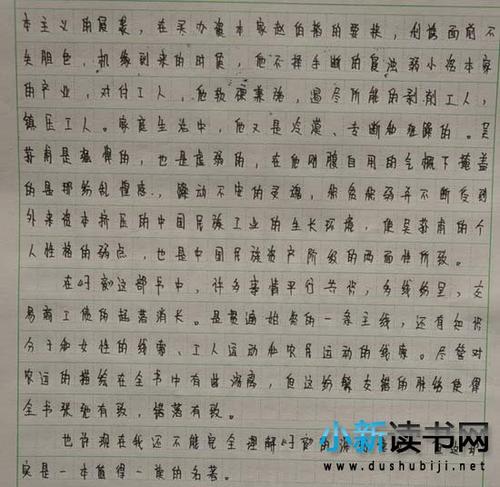 本主义的侵袭，在买办资本家赵伯韬的要挟，利诱面前不
失胆色，机缘到来的时候，他不择手断的侵浊弱小资本家
的产业，对付工人，他软硬兼施，遏尽所能的剥削工人，
镇压工人。家庭生活中，他又是冷漠、专断和 的。吴
荪甫是强悍的，也是虚弱的，在他刚腹自用的气概下掩盖
的是那纷乱惶惑，
外来资本 的中国民族工业的生长环境，使吴荪甫的个
人性格的弱点，也是中国民族资产阶级的两面性所致。
在《子夜》这部书中，许多事情平行共 ，多线纷呈，交
易商工债的起落消长。是贯通始贞的一条主线，还有知识
分子和女性的线索、工人运动和农民运动的线索。尽管对
农运的描绘在全书中有些游离，但这纷繁交错的脉络使得
全书张弛有致，错落有致。
也许现在我还不能完全理解《子夜》的深
实是一本值得一读的名著。
小新读书网
www.dushubiji.net